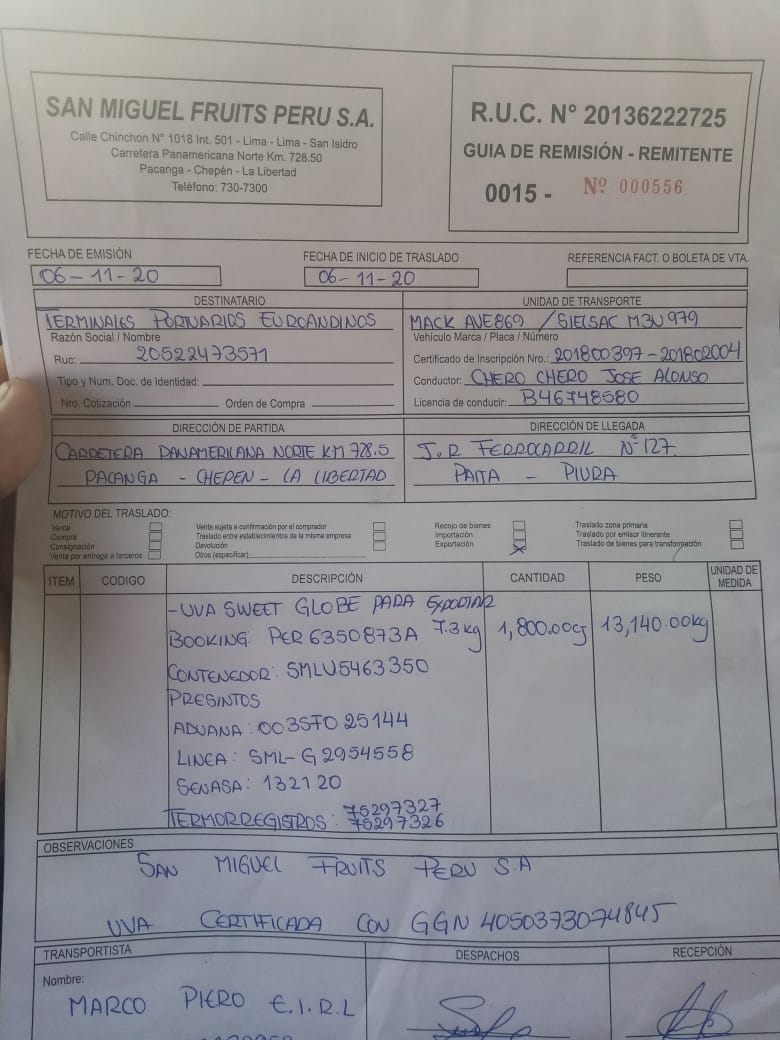 SAN MIGUEL FRUITS PERU S.A.
Calle Chinchon N° 1018 Int. 501 - Lima - Lima - San Isidro
Carretera Panamericana Norte Km. 728.50
Pacanga - Chepén - La Libertad
Teléfono: 730-7300
R.U.C. N° 20136222725
GUIA DE REMISIÓN - REMITENTE
0015 - Nº 000556
FECHA DE EMISIÓN
06-11-20
FECHA DE INICIO DE TRASLADO
06-11-20
REFERENCIA FACT. O BOLETA DE VTA.
DESTINATARIO
TERMINALES PORTUARIOS EUROANDINOS
Razón Social / Nombre
Ruc: 20522473571
Tipo y Num. Doc. de Identidad:
Nro. Cotización Orden de Compra
UNIDAD DE TRANSPORTE
MACK AVE869 / SIELSAC M3U979
Vehículo Marca / Placa / Número
Certificado de Inscripción Nro.: 201800397-201802004
Conductor: CHERO CHERO JOSE ALONSO
Licencia de conducir: B46748580
DIRECCIÓN DE PARTIDA
CARRETERA PANAMERICANA NORTE KM 728.5
PACANGA - CHEPEN - LA LIBERTAD
DIRECCIÓN DE LLEGADA
J.R FERROCARRIL Nº127
PAITA - PIURA
MOTIVO DEL TRASLADO:
Venta
Compra
Consignación
Venta por entrega a terceros
Venta sujeta a confirmación por el comprador
Traslado entre establecimientos de la misma empresa
Devolución
Otros (especificar)
Recojo de bienes
Importación
Exportación X
Traslado zona primaria
Traslado por emisor itinerante
Traslado de bienes para transformación
ITEM CODIGO DESCRIPCIÓN CANTIDAD PESO UNIDAD DE MEDIDA
-UVA SWEET GLOBE PARA EXPORTAR
BOOKING: PER6350873A 7.3kg 1,800.00cj 13,140.00kg
CONTENEDOR: SMLU5463350
PRESINTOS
ADUANA: 003570 25144
LINEA: SML-G2954558
SENASA: 132120
75297327
TERMORREGISTROS: 75297326
OBSERVACIONES
SAN MIGUEL FRUITS PERU S.A
UVA CERTIFICADA CON GGN 4050373074845
TRANSPORTISTA
Nombre:
MARCO PIERO E.I.R.L
DESPACHOS
RECEPCIÓN